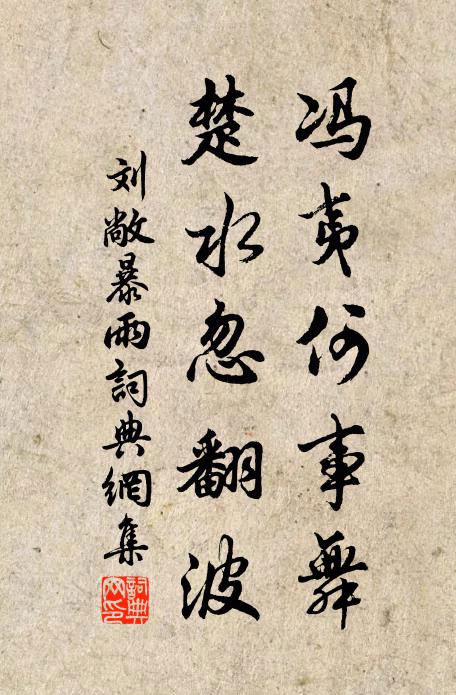 冯夷何事舞
楚水忽翻波
刘敞暴雨詞典網集
詞典网印